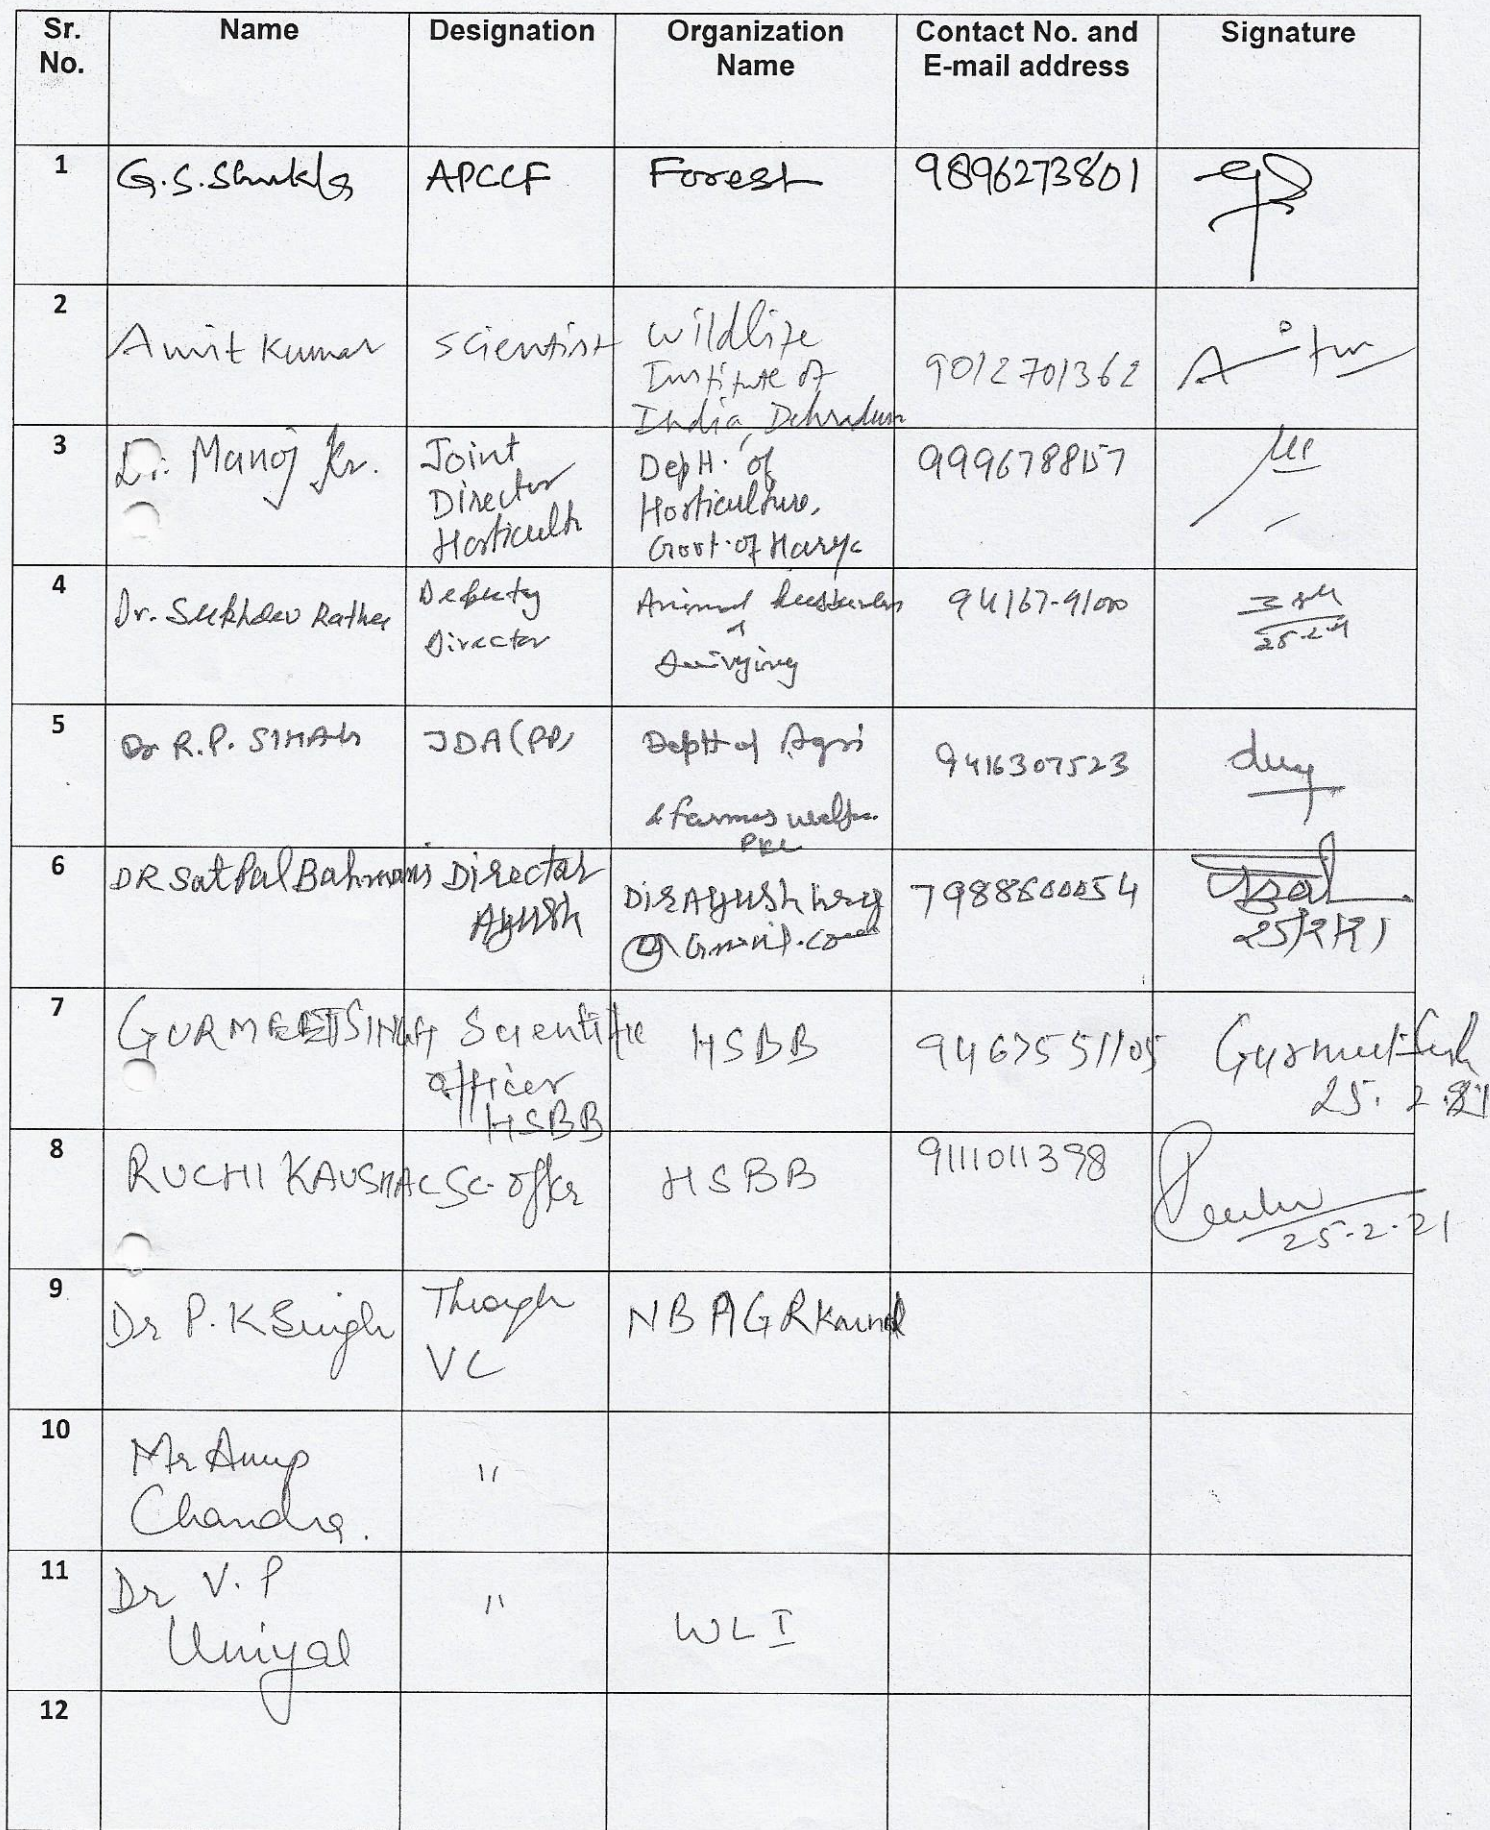 Sr. No. Name Designation Organization Name Contact No. and E-mail address Signature
1 G.S. Shukla APCCF Forest 9896273801
2 Amit Kumar Scientist Wildlife
Institute of
India, Dehradun
9012701362
3 Dr. Manoj Kr. Joint
Director
Horticultr
Deptt. of
Horticulture,
Govt. of Harya
9996788157
4 Dr. Sukhdev Rathee Deputy
Director
Animal
94167-91000
25-2-21
5 Dr R.P. SIHAG JDA (PP) Deptt of Agri
& farmers welfare
PKL
9416307523
6 DR Sat Pal Bahmani Director
Ayush
DirAyush hry
@ Gmail.com
7988600054
25/2/21
7 GURMEET SINGH Scientific
officer
HSBB
HSBB
9467551105
Gurmeet Singh
25.2.21
8 RUCHI KAUSHAL Sc. offcr HSBB 9111011398
25-2-21
9 Dr P. K Singh Through
VC
NBAGR Karnal
10 Mr Anup
Chandra.
"
11 Dr V. P
Uniyal
"
WLI
12